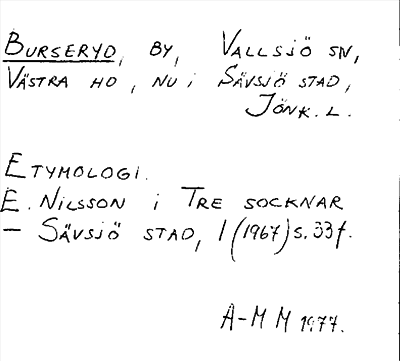 BURSERYD, BY, VALLSJÖ SN,
VÄSTRA HD, NU I SÄVSJÖ STAD,
JÖNK. L.
ETYMOLOGI.
E. NILSSON I TRE SOCKNAR
– SÄVSJÖ STAD, 1 (1967) s. 33 f.
A-M M 1977.